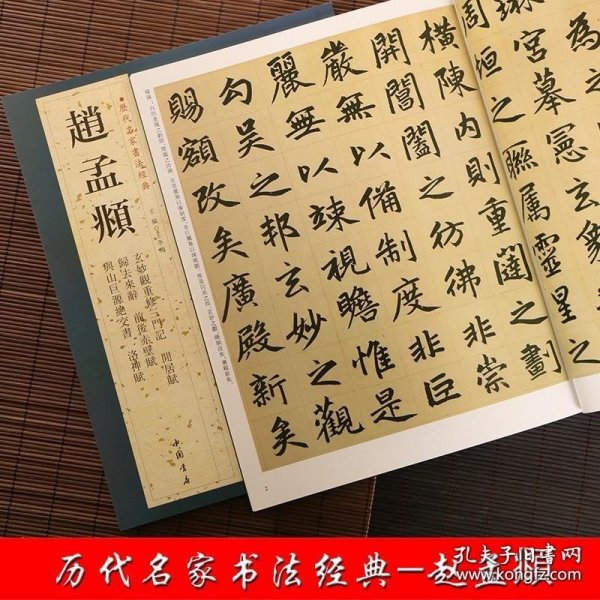 為之
琳宮
周垣之聯屬靈星之
橫陳內則重闥之劃
開閶闔之彷彿非崇
嚴無以備制度非巨
麗無以竦視瞻惟是
勾吳之邦玄妙之觀
賜額改矣廣殿新矣
歷代名家書法經典
趙孟頫
玄妙觀重修三門記 閒居賦
歸去來辭 前後赤壁賦
與山巨源絕交書 洛神賦
中國書店
历代名家书法经典—赵孟頫
孔夫子旧书网
www.kongfz.com